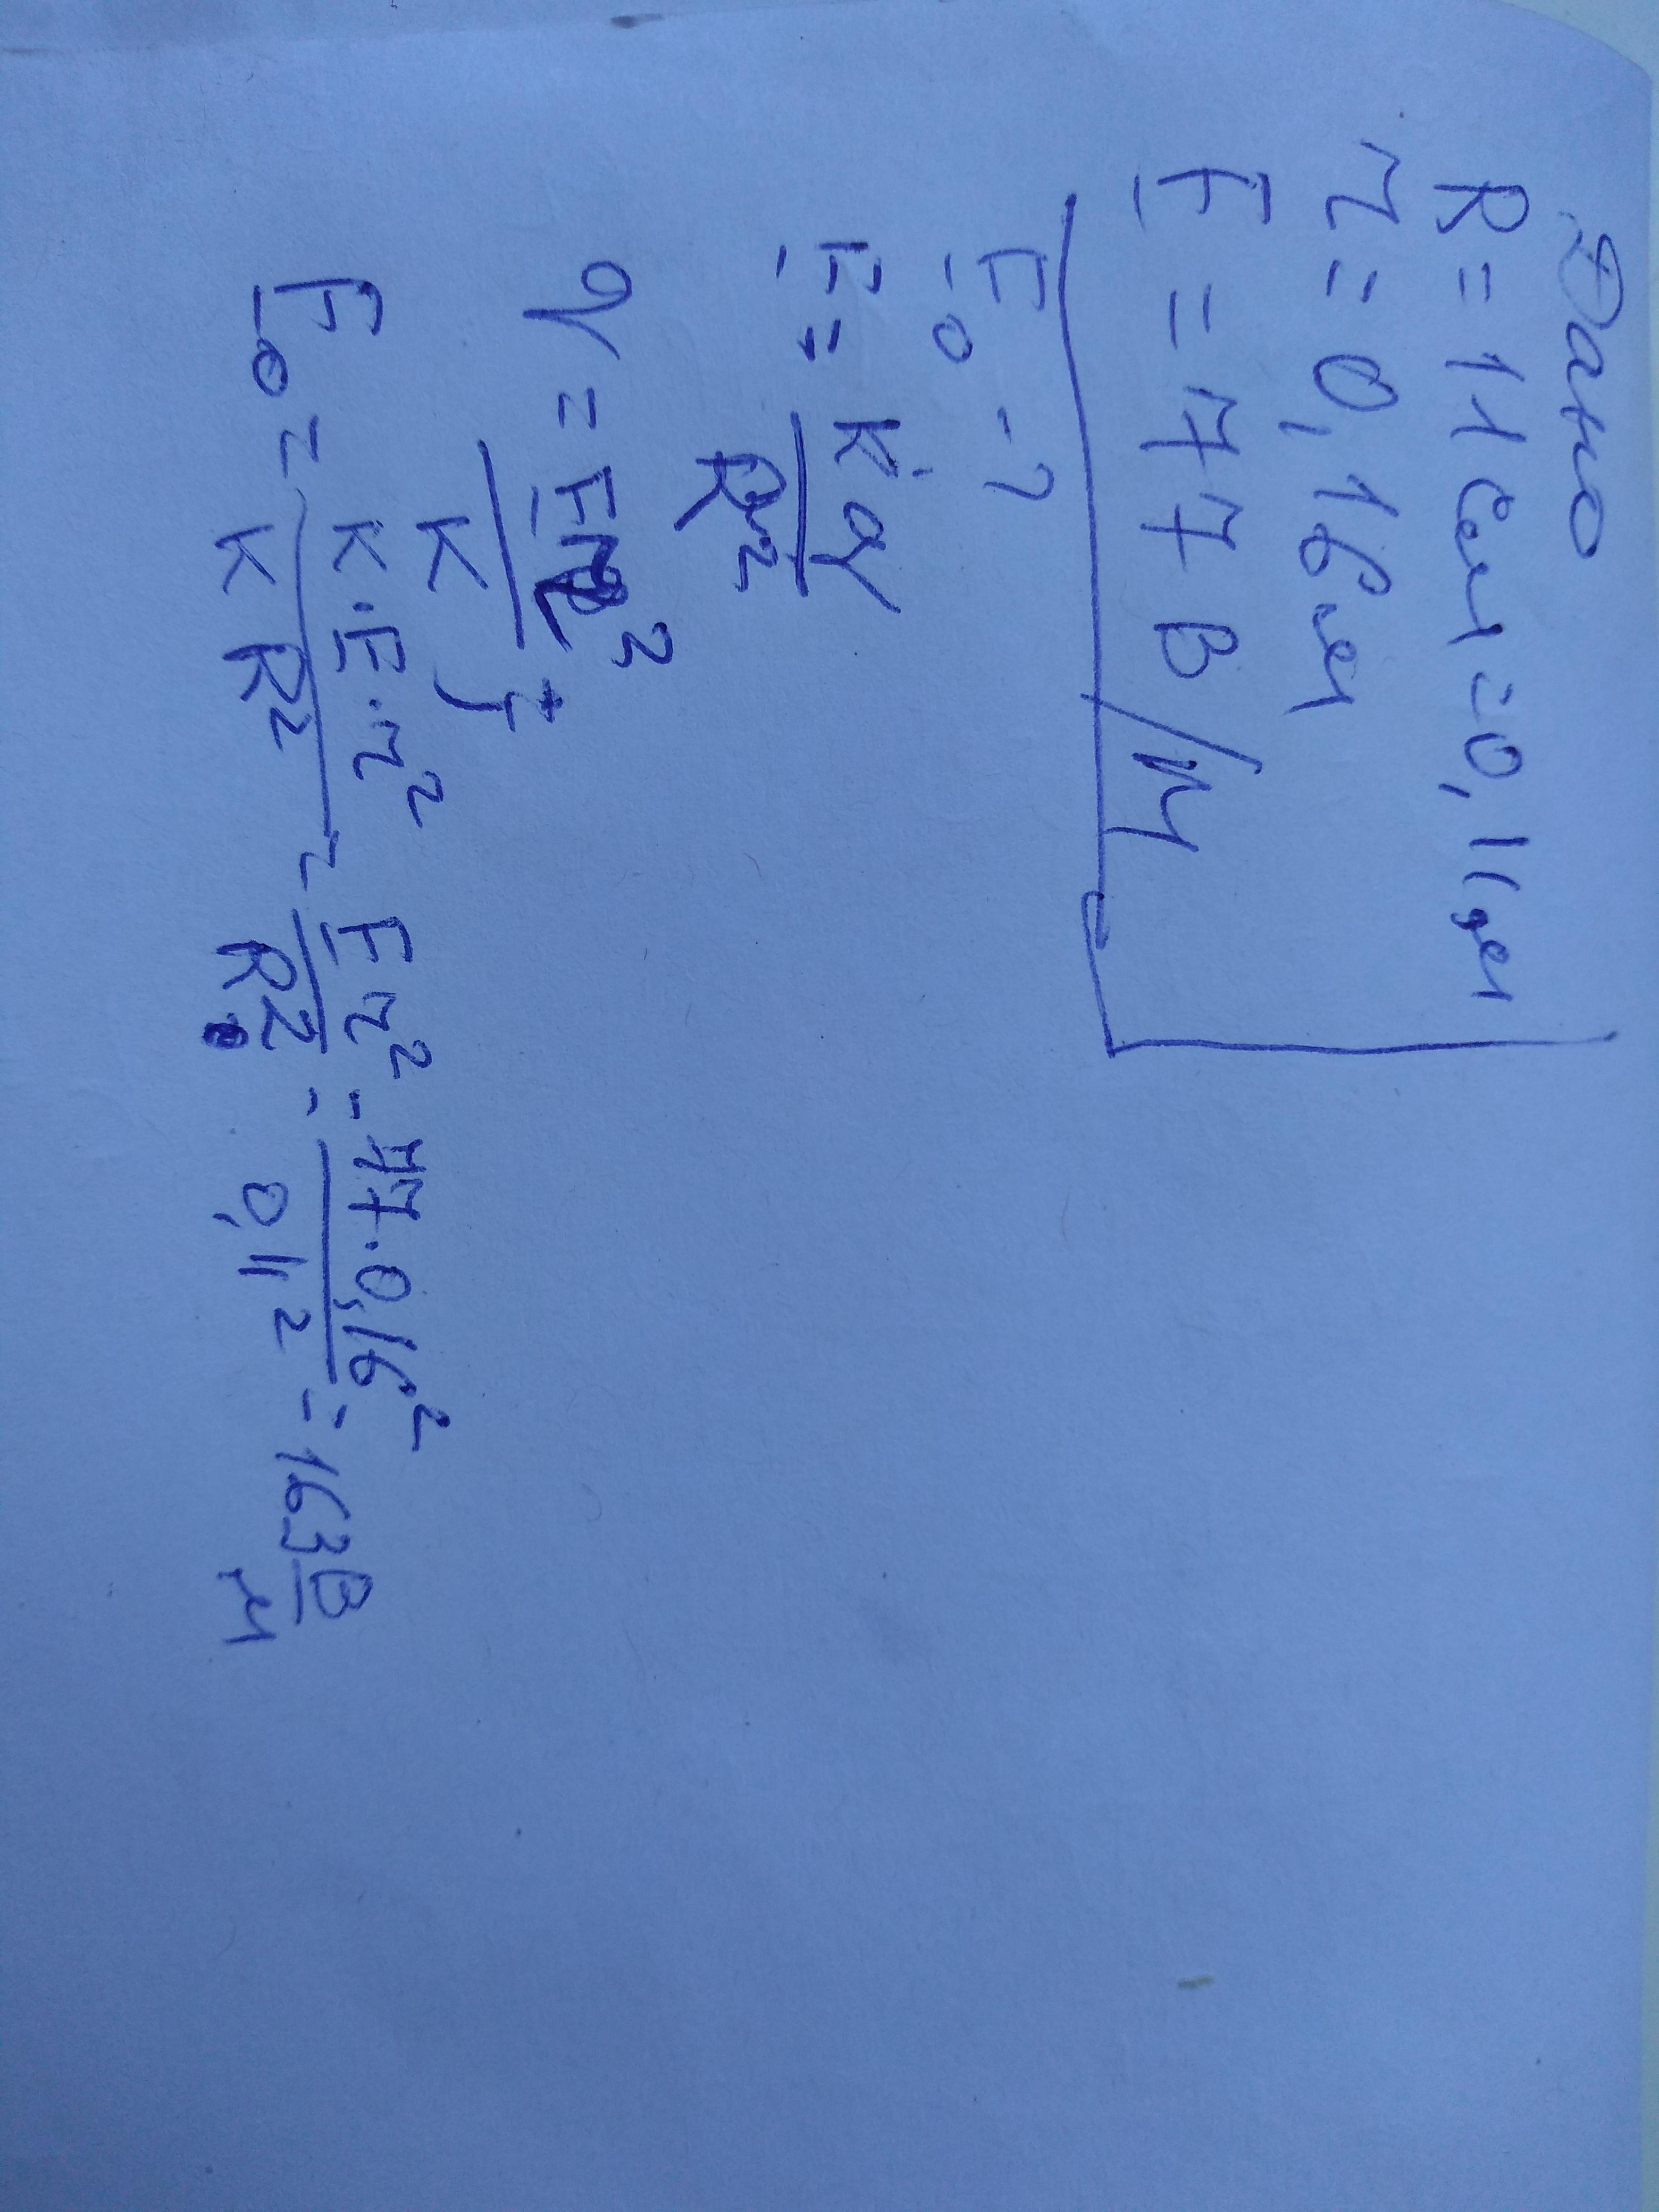 Дано
R = 11 см = 0,11 м
r = 0,16 м
E = 77 В/М
E₀ - ?
E = kq / R²
q = Er² / K ;
E₀ = K·E·r² / K R² = Er² / R² = 77·0,16² / 0,11² = 163 В/м